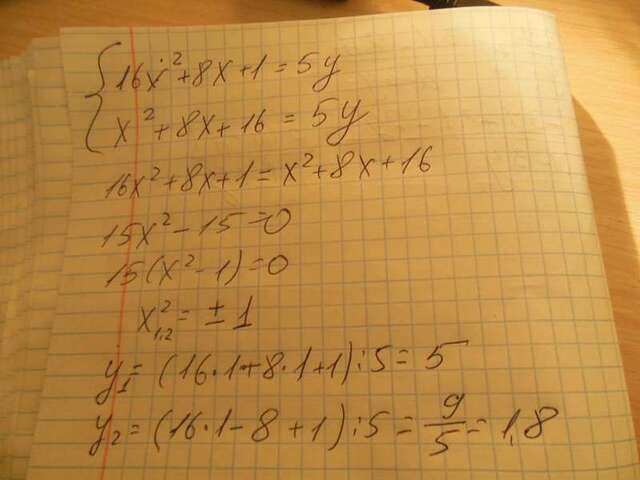 { 16x² + 8x + 1 = 5y
x² + 8x + 16 = 5y
16x² + 8x + 1 = x² + 8x + 16
15x² - 15 = 0
15(x² - 1) = 0
x²₁,₂ = ± 1
y₁ = (16·1 + 8·1 + 1) : 5 = 5
y₂ = (16·1 - 8 + 1) : 5 = 9/5 = 1,8